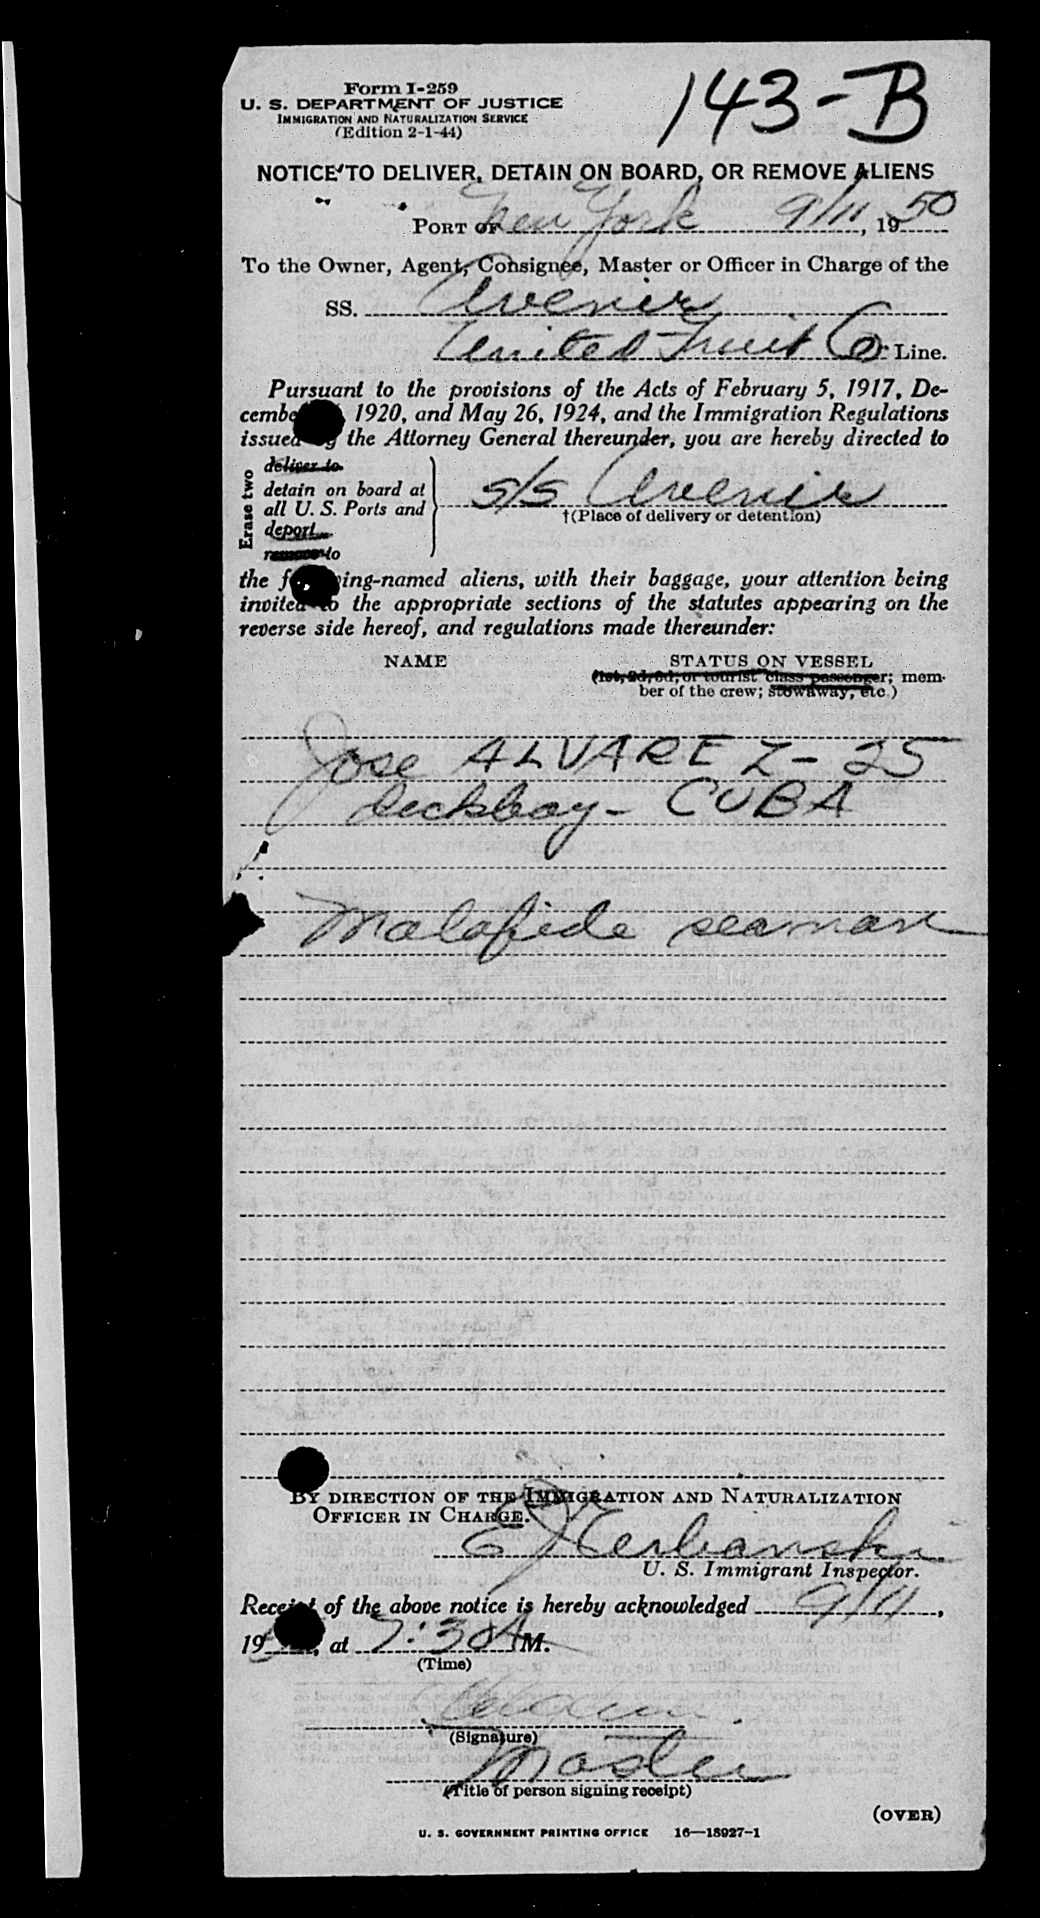 143-B
Form I-259
U. S. DEPARTMENT OF JUSTICE
IMMIGRATION AND NATURALIZATION SERVICE
(Edition 2-1-44)
NOTICE TO DELIVER, DETAIN ON BOARD, OR REMOVE ALIENS
PORT OF New York 9/11, 1950
To the Owner, Agent, Consignee, Master or Officer in Charge of the
SS. Avenir
United Fruit Co or Line.
Pursuant to the provisions of the Acts of February 5, 1917, De-
cembe 1920, and May 26, 1924, and the Immigration Regulations
issued by the Attorney General thereunder, you are hereby directed to
Erase two
deliver to
detain on board at
all U. S. Ports and
deport
remove to
s/s Avenir
†(Place of delivery or detention)
the following-named aliens, with their baggage, your attention being
invited to the appropriate sections of the statutes appearing on the
reverse side hereof, and regulations made thereunder:
NAME STATUS ON VESSEL
(1st, 2d, 3d, or tourist class passenger; mem-
ber of the crew; stowaway, etc.)
Jose ALVAREZ - 25
deckboy - CUBA
Malafide seaman
BY DIRECTION OF THE IMMIGRATION AND NATURALIZATION
OFFICER IN CHARGE.
U. S. Immigrant Inspector.
Receipt of the above notice is hereby acknowledged 9/11,
19 , at 7:30 A M.
(Time)
(Signature)
Master
(Title of person signing receipt)
(OVER)
U. S. GOVERNMENT PRINTING OFFICE 16—18927-1